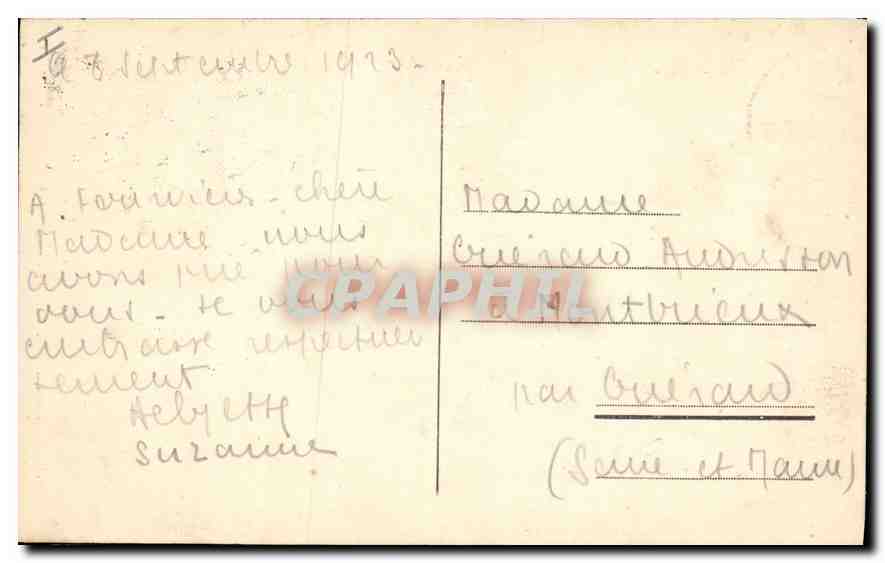 I
8 Septembre 1923.
A Fourvière - chère
Madame nous
avons prié pour
vous - je vous
embrasse respectueu
sement
Suzanne
Madame
Guérand
à Montbrieux
par Guérard
(Seine et Marne)
CPAPHIL